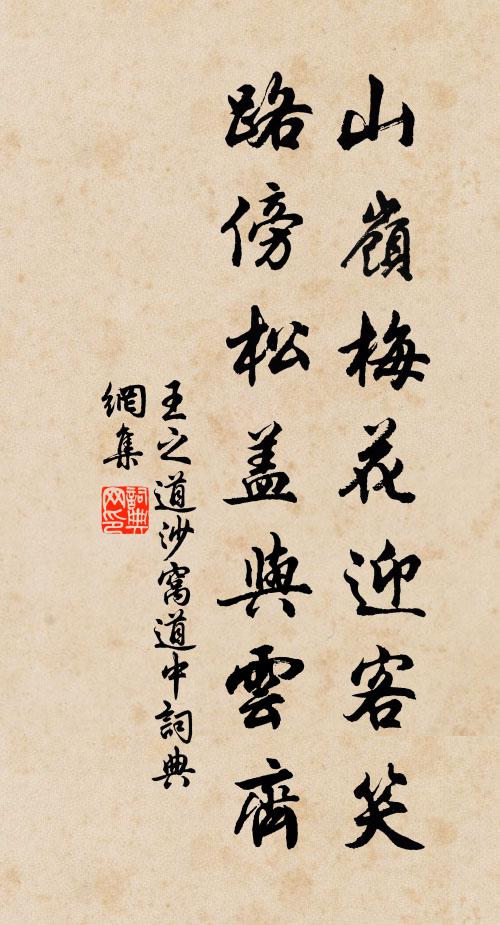 山嶺梅花迎客笑
路傍松蓋與雲齊
王之道沙窩道中詞典
網集
詞典网印